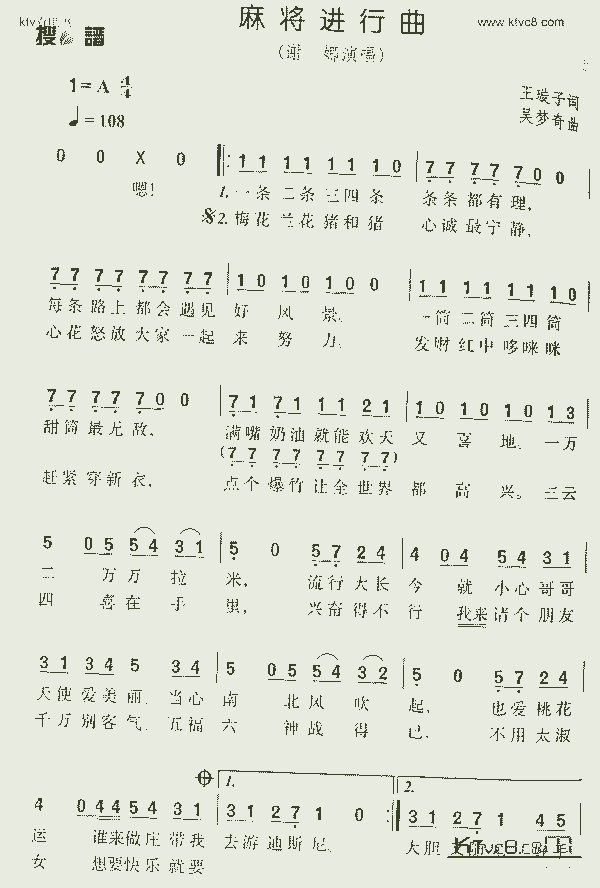 ktv
搜 譜
麻将进行曲
www.ktvc8.com
(谢 娜演唱)
1=A 4/4
♩=108
王璇子词
吴梦奇曲
0 0 X 0 1 1 1 1 1 1 1 0 7 7 7 7 7 0 0
嗯! 1.一条 二条 三四条 条条都有理,
2.梅花 兰花猪和猪 心诚最宁静,
7 7 7 7 7 7 7 7 1 0 1 0 1 0 0 1 1 1 1 1 1 1 0
每条 路上 都会 遇见 好 风 景。 一筒 二筒 三四筒
心花 怒放 大家 一起 来 努 力。 发财 红中 哆咪咪
7 7 7 7 7 0 0 7 1 7 1 1 1 2 1 1 0 1 0 1 0 1 3
甜筒最无敌, 满嘴 奶油 就能 欢天 又 喜 地。 一万
(7 7 7 7 7 7 7 7)
赶紧穿新衣, 点个 爆竹 让全 世界 都 高 兴。 三云
5 0 5 5 4 3 1 5 0 5 7 2 4 4 0 4 5 4 3 1
二 万 万 拉 米, 流行 大长 今 就 小心 哥哥
四 喜 在 手 里, 兴奋 得不 行 我来 请个 朋友
3 1 3 4 5 3 4 5 0 5 5 4 3 2 5 0 5 7 2 4
天使 爱美 丽。 当心 南 北 风 吹 起, 也爱 桃花
千万 别客 气。 五福 六 神 战 得 已, 不用 太淑
1. 2.
4 0 4 4 5 4 3 1 3 1 2 7 1 0 3 1 2 7 1 4 5
运 谁来 做庄 带我 去游 迪斯 尼。 大胆
女 想要 快乐 就要
Ktvc8.com